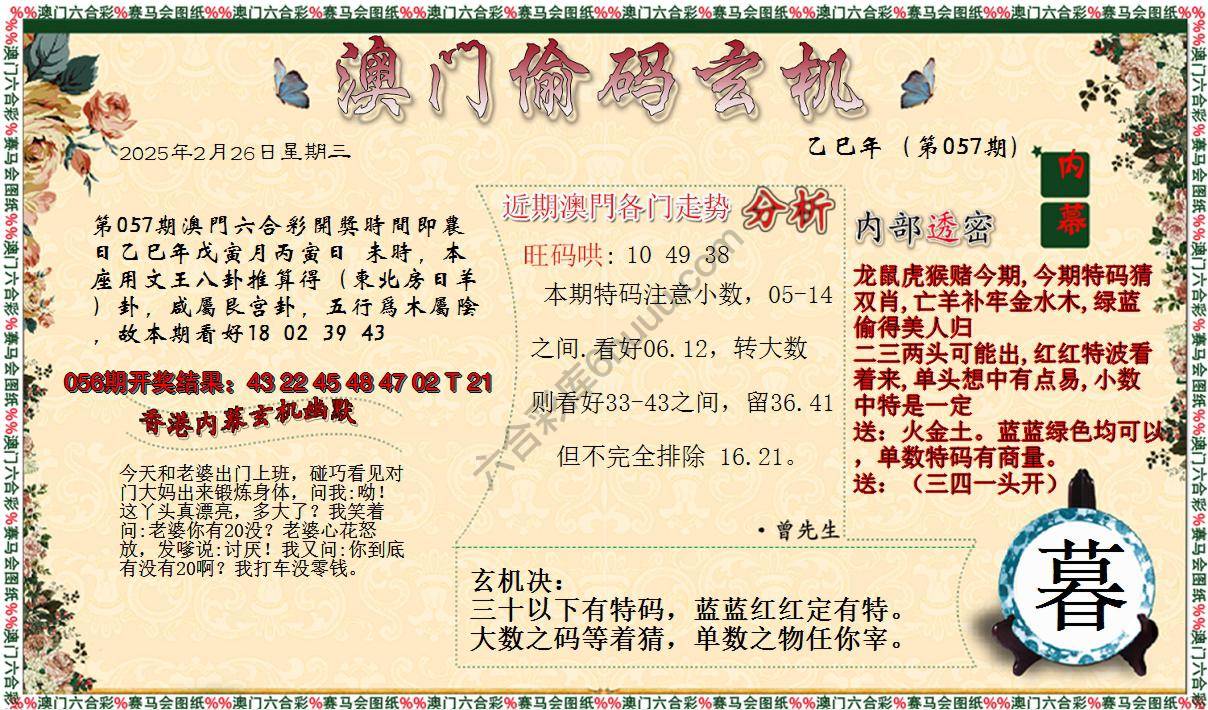 %%澳门六合彩%赛马会图纸%%澳门六合彩%赛马会图纸%%澳门六合彩%赛马会图纸
澳门偷码玄机
2025年2月26日星期三
乙巳年（第057期）
内幕
第057期澳門六合彩開獎時間即農
日乙巳年戊寅月丙寅日 未時，本
座用文王八卦推算得（東北房日羊
）卦，咸屬艮宫卦，五行爲木屬陰
，故本期看好18 02 39 43
056期开奖结果：43 22 45 48 47 02 T 21
香港内幕玄机幽默
今天和老婆出门上班，碰巧看见对
门大妈出来锻炼身体，问我:呦！
这丫头真漂亮，多大了？我笑着
问:老婆你有20没？老婆心花怒
放，发嗲说:讨厌！我又问:你到底
有没有20啊？我打车没零钱。
近期澳門各门走势 分析
旺码哄: 10 49 38
本期特码注意小数，05-14
之间.看好06.12，转大数
则看好33-43之间，留36.41
但不完全排除 16.21。
·曾先生
内部透密
龙鼠虎猴赌今期,今期特码猜
双肖,亡羊补牢金水木,绿蓝
偷得美人归
二三两头可能出,红红特波看
着来,单头想中有点易,小数
中特是一定
送：火金土。蓝蓝绿色均可以
，单数特码有商量。
送：（三四一头开）
玄机决：
三十以下有特码，蓝蓝红红定有特。
大数之码等着猜，单数之物任你宰。
暮